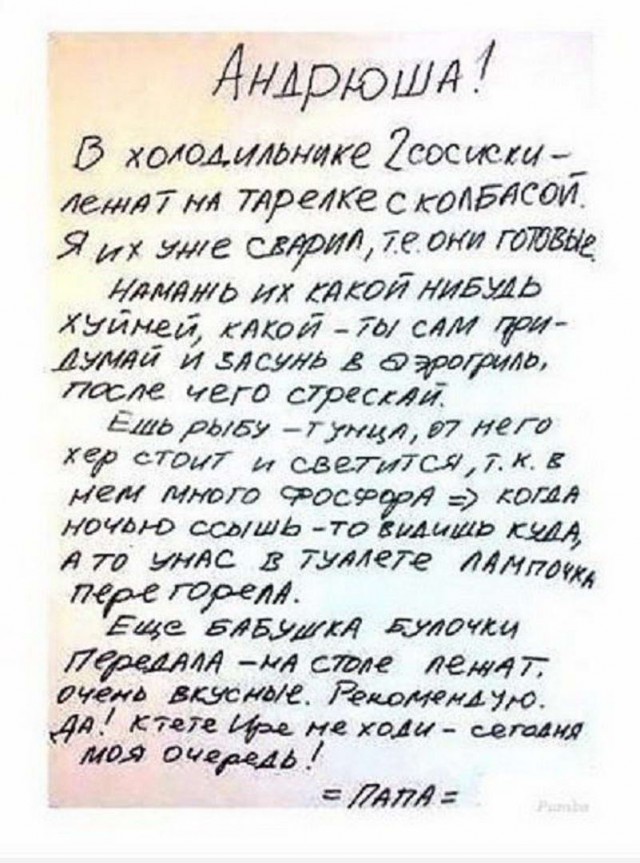 Андрюша!
В холодильнике 2 сосиски –
лежат на тарелке с колбасой.
Я их уже сварил, т.е. они готовые.
Намажь их какой нибудь
хуйней, какой – ты сам при-
думай и засунь в аэрогриль,
после чего стрескай.
Ешь рыбу – тунца, от него
хер стоит и светится, т.к. в
нем много фосфора => когда
ночью ссышь – то видишь куда,
а то у нас в туалете лампочка
перегорела.
Еще бабушка булочки
передала – на столе лежат.
очень вкусные. Рекомендую.
Да! к тете Ире не ходи – сегодня
моя очередь!
= ПАПА =
Pumba